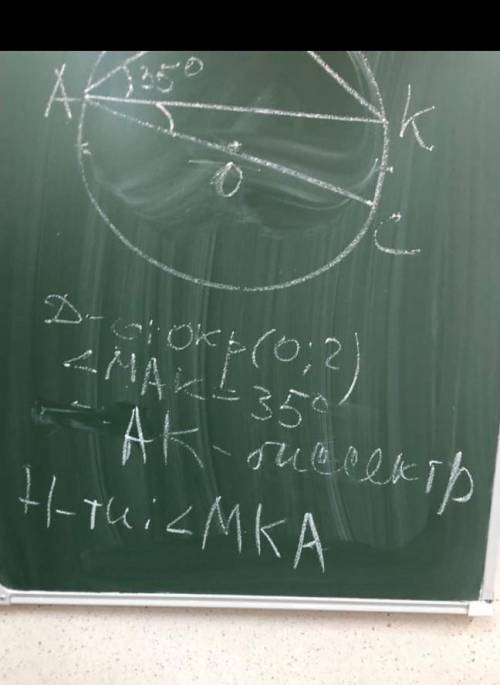 35°
A
K
O
C
Д-о: окр(О; r)
<MAK = 35°
AK - биссектр
Н-ти: <MKA